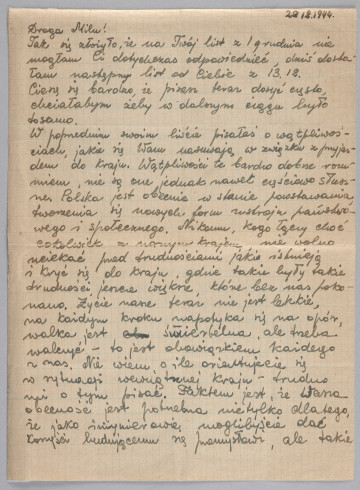 28.12.1944.
Droga Milu!
Tak się złożyło, że na Twój list z 1 grudnia nie
mogłam Ci dotychczas odpowiedzieć, dziś dosta-
łam następny list od Ciebie z 13.12.
Cieszę się bardzo, że piszesz teraz dosyć często,
chciałabym żeby w dalszym ciągu było
to samo.
W poprzednim swoim liście pisałaś o wątpliwoś-
ciach, jakie się Wam nasuwają w związku z przyjaz-
dem do kraju. Wątpliwości te bardzo dobrze rozu-
miem, nie są one jednak nawet częściowo słusz-
ne. Polska jest obecnie w stanie powstawania,
tworzenia się nowych form ustroju państwo-
wego i społecznego. Nikomu, kogo łączy choć
cokolwiek z naszym krajem, nie wolno
uciekać przed trudnościami jakie istnieją
i kryć się do kraju, gdzie takie były takie
trudności jeszcze większe, które bez nas poko-
nano. Życie nasze teraz nie jest lekkie,
na każdym kroku napotyka się na opór,
walka jest śmiertelna, ale trzeba
walczyć - to jest obowiązkiem każdego
z nas. Nie wiem, o ile orientujecie się
w sytuacji wewnętrznej kraju - trudno
mi o tym pisać. Faktem jest, że Wasza
obecność jest potrzebna nie tylko dlatego,
że jako inżynierowie, moglibyście dać
korzyść budującemu się przemysłowi, ale także